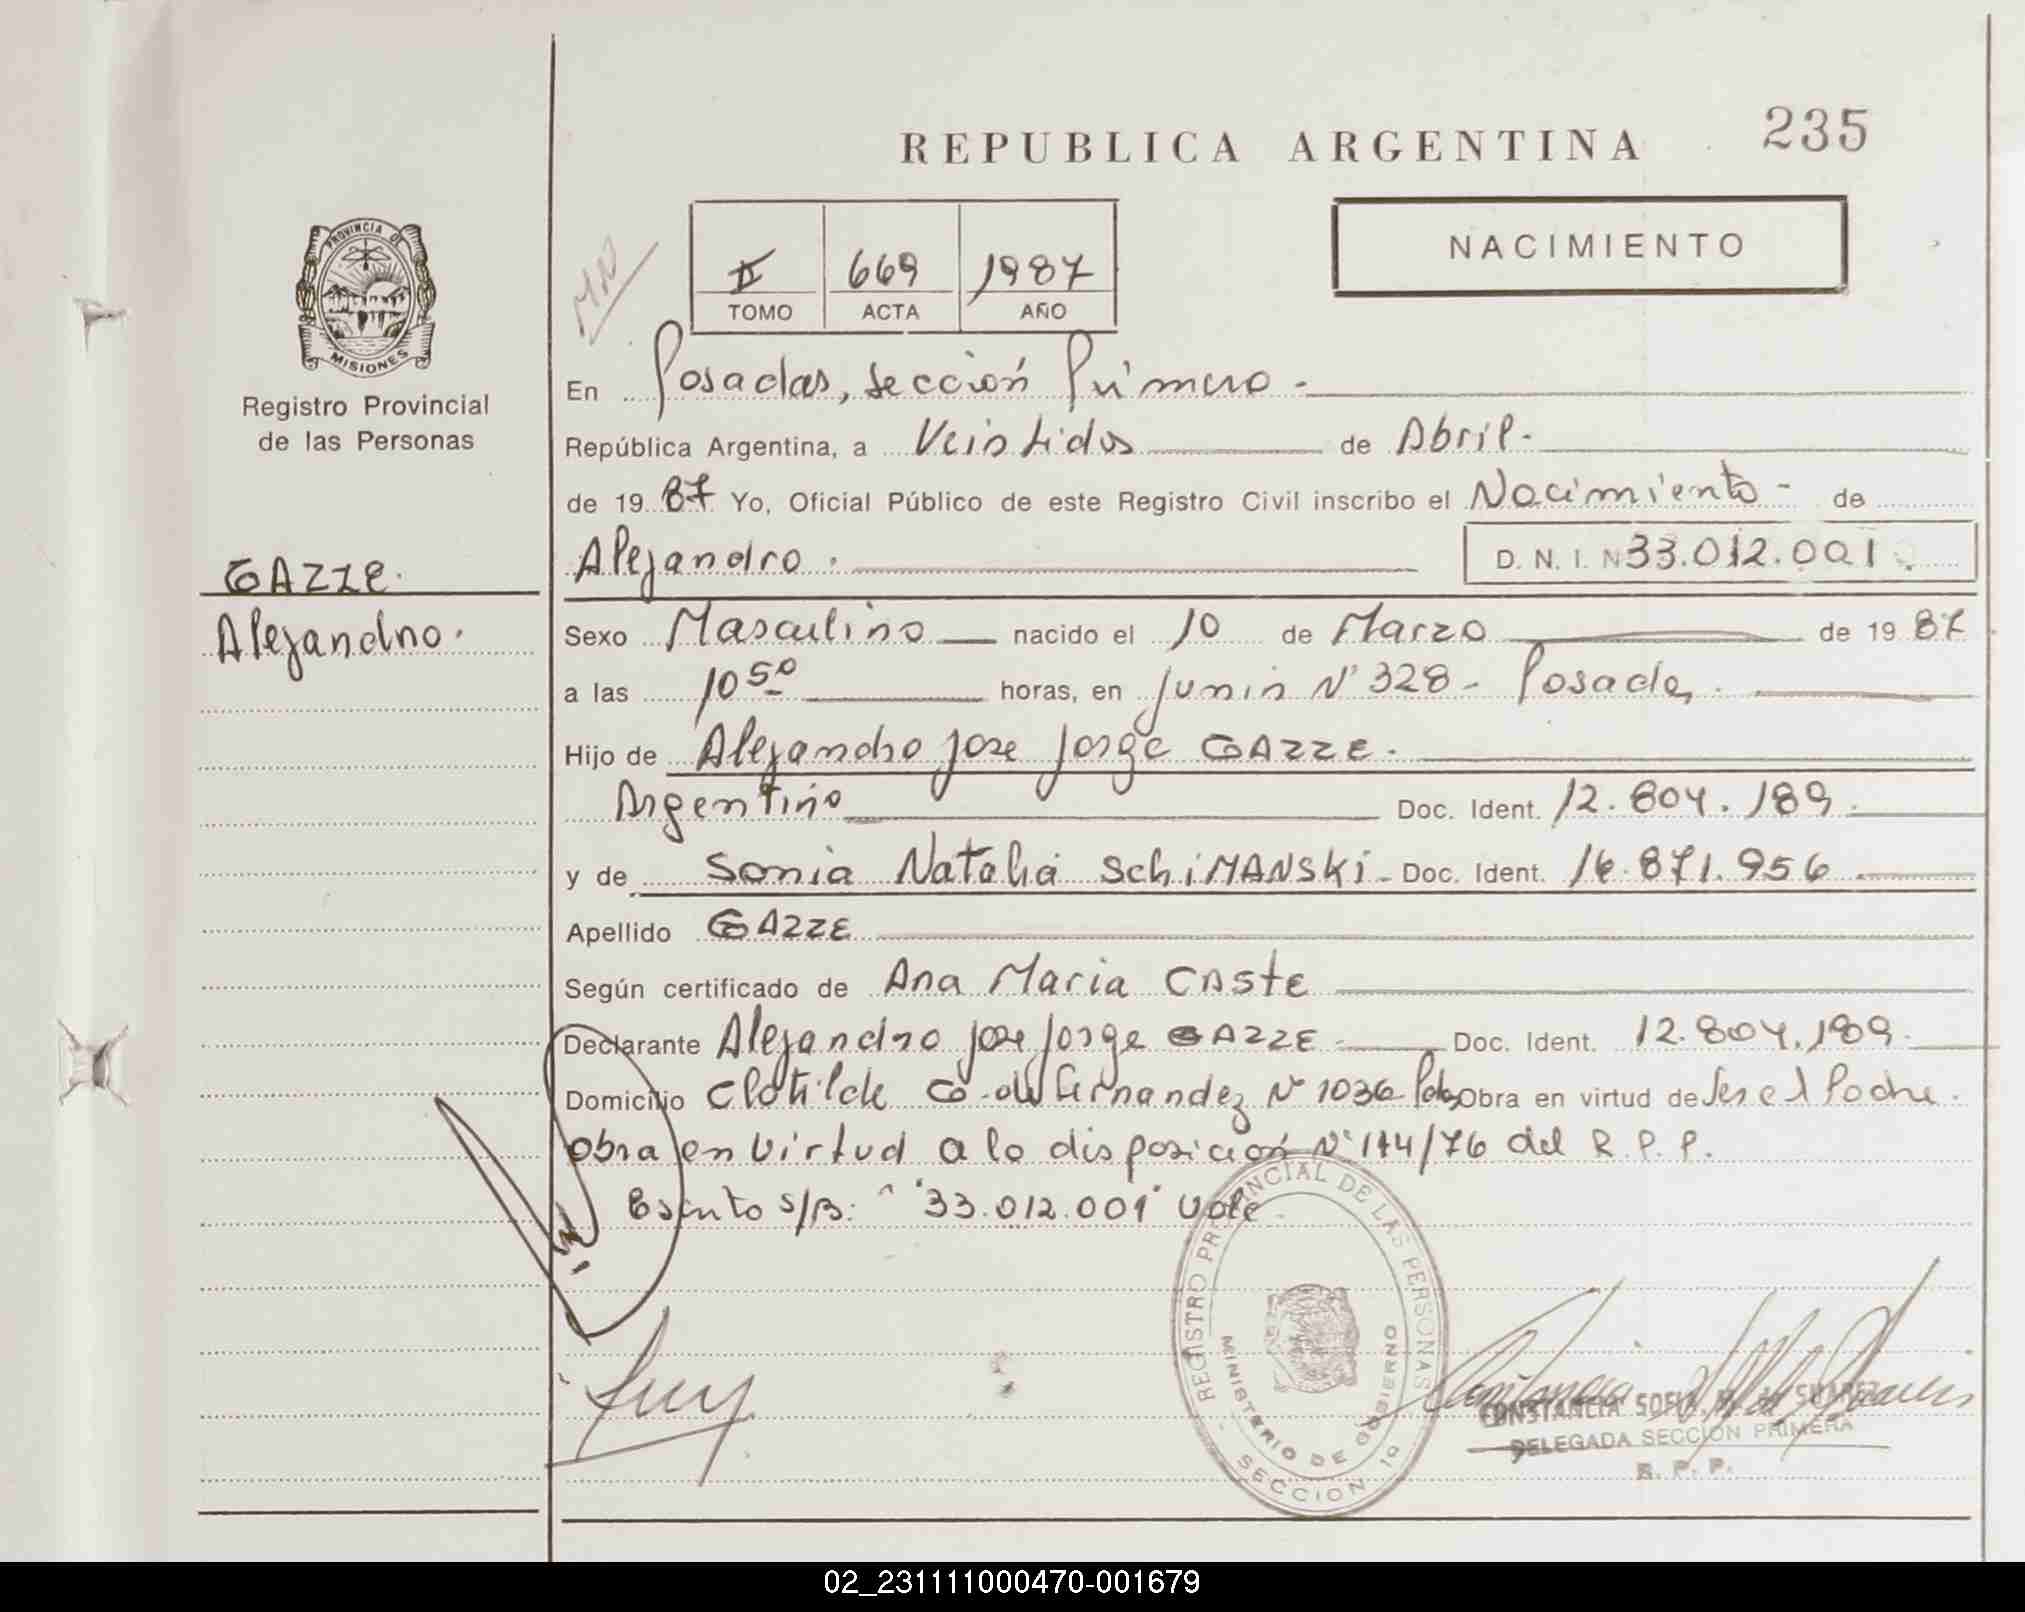 235
REPUBLICA ARGENTINA
NACIMIENTO
II 669 1987
TOMO ACTA AÑO
PROVINCIA DE
MISIONES
Registro Provincial
de las Personas
GAZZE.
Alejandro.
En Posadas, Sección Primera -
República Argentina, a Veintidos de Abril -
de 19 87 Yo, Oficial Público de este Registro Civil inscribo el Nacimiento - de
Alejandro . D. N. I. N 33.012.001
Sexo Masculino nacido el 10 de Marzo de 19 87
a las 10 50 horas, en Junin Nº 328 - Posadas.
Hijo de Alejandro Jose Jorge GAZZE.
Argentino Doc. Ident. 12.804.189.
y de Sonia Natalia SchiMANSKi - Doc. Ident. 16.871.956
Apellido GAZZE
Según certificado de Ana Maria CASTE
Declarante Alejandro Jose Jorge GAZZE Doc. Ident. 12.804.189.
Domicilio Clotilde G. de Fernandez Nº 1036 Pdas Obra en virtud de Ser el Padre.
Obra en virtud a la disposición Nº 114/76 del R.P.P.
Escrito s/B: "33.012.001" Vale
REGISTRO PROVINCIAL DE LAS PERSONAS
MINISTERIO DE GOBIERNO
SECCION 1º
CONSTANCIA SOFIA M. de SUAREZ
DELEGADA SECCION PRIMERA
R. P. P.
02_231111000470-001679